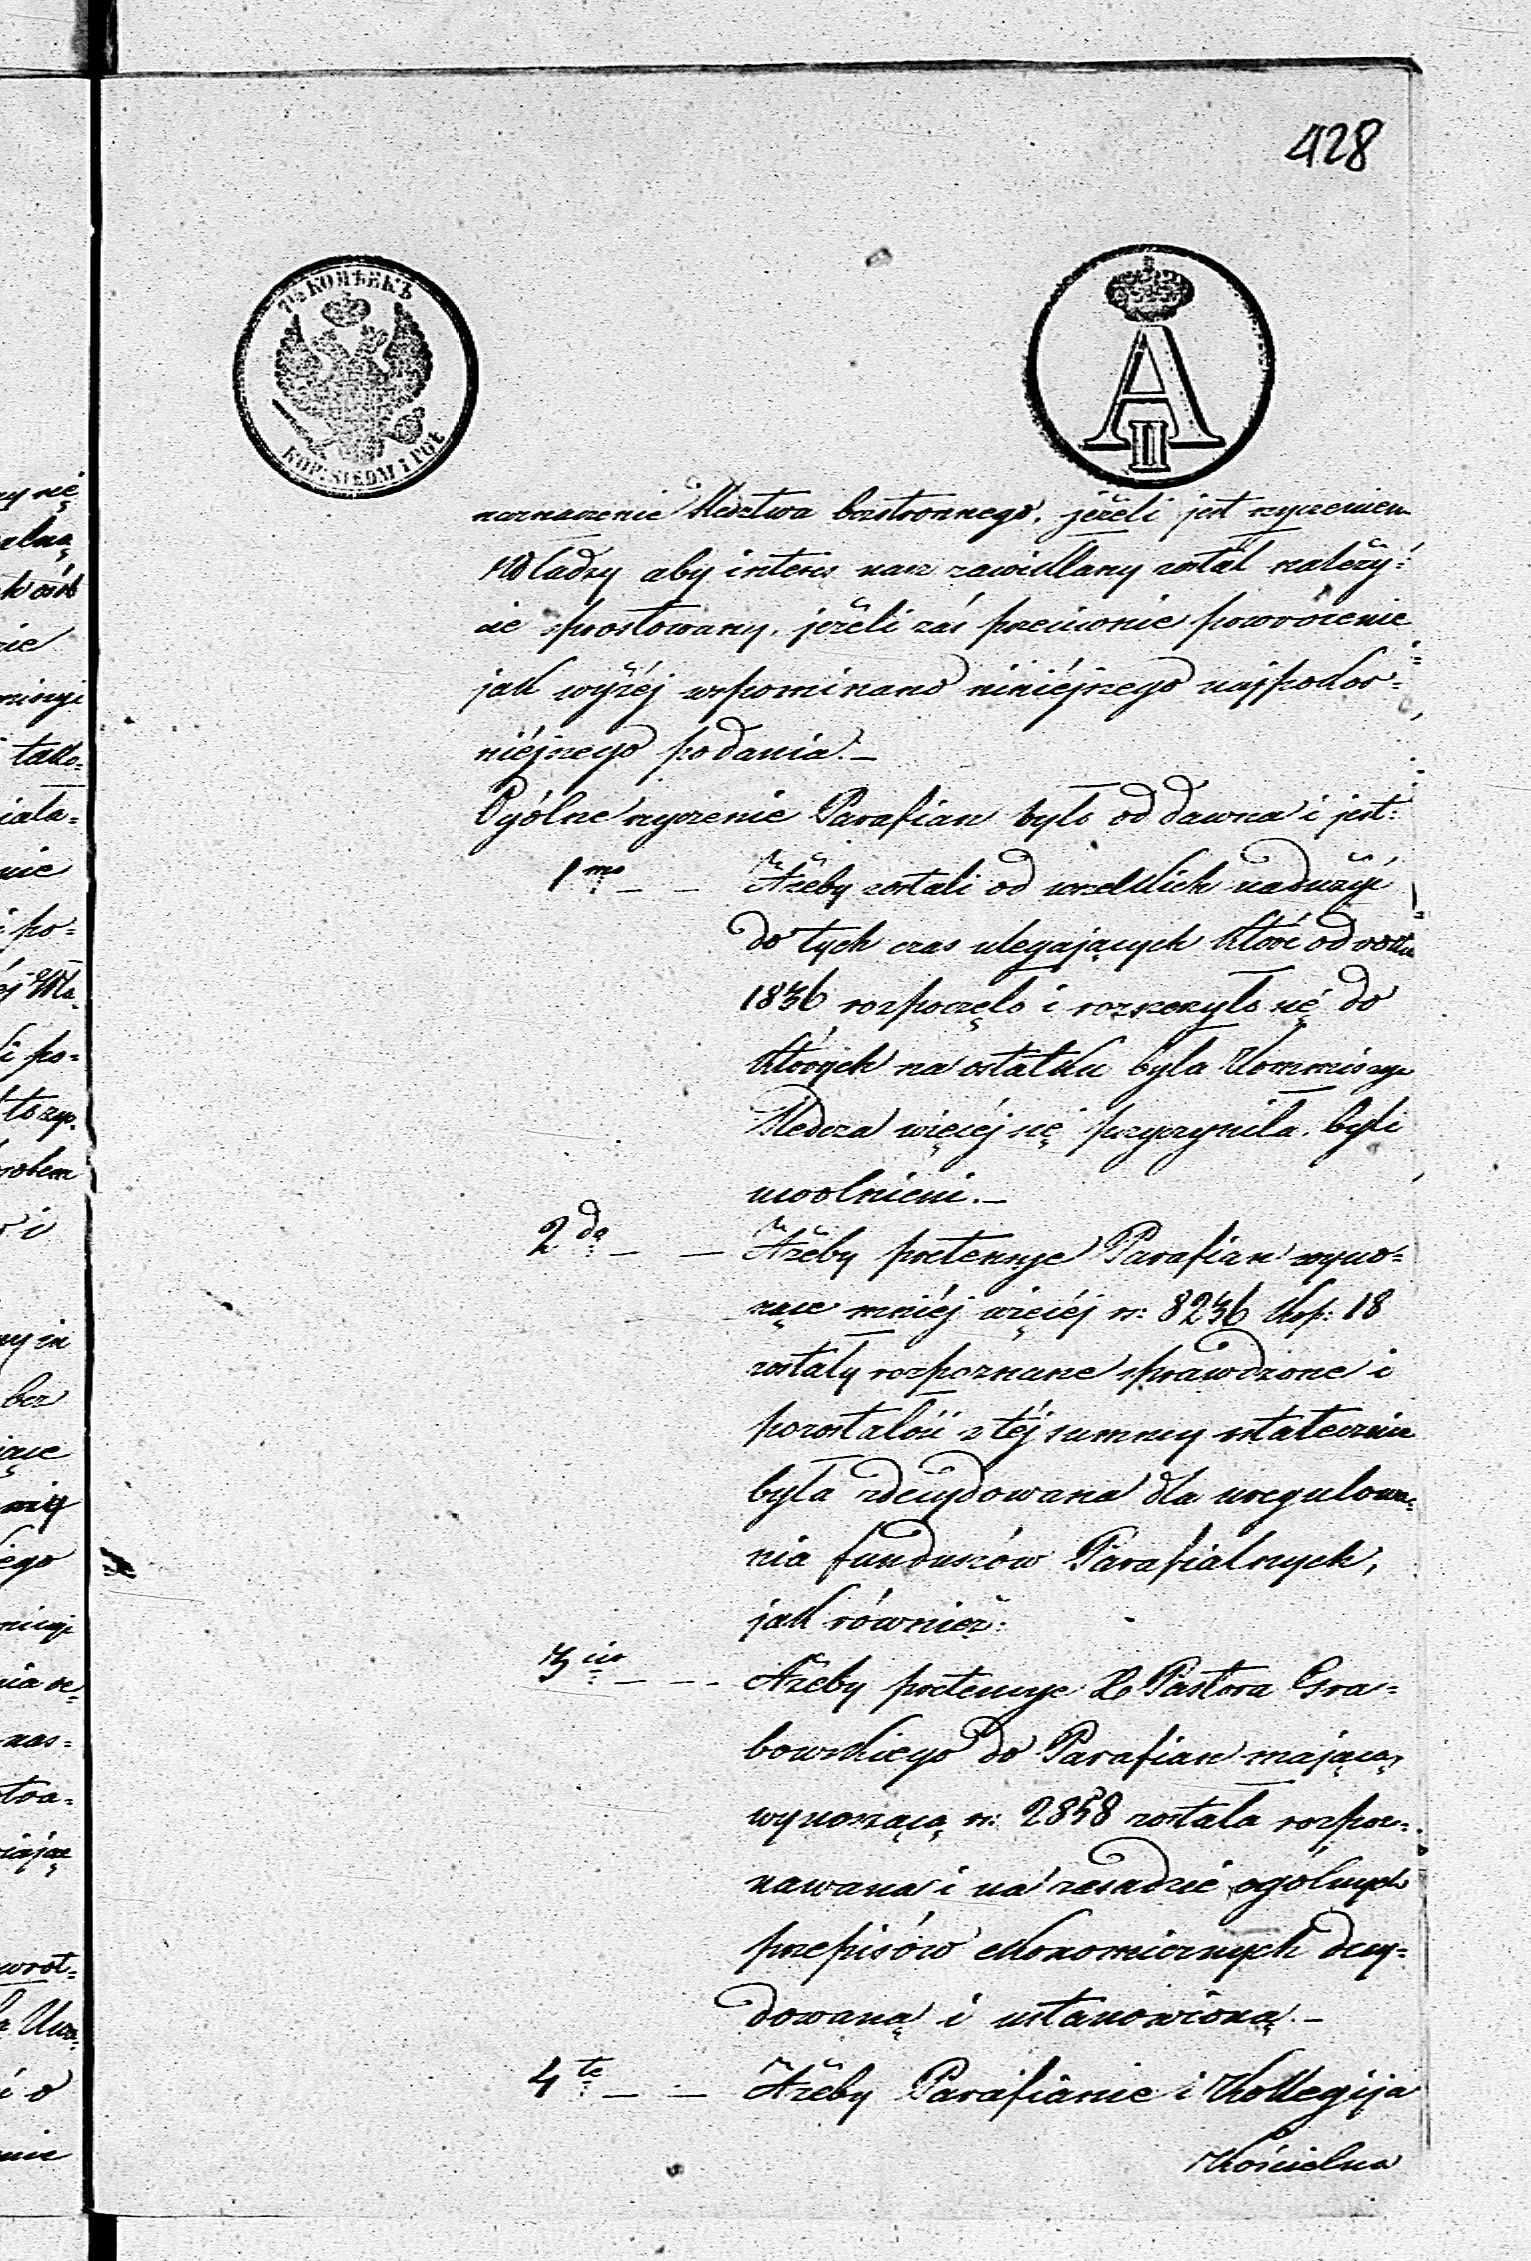 428
7½ КОПѢЕКЪ
KOP. SIEDM i PÓŁ
A II
naznaczenie Śledztwa bezstronnego, jeżeli jest życzeniem
Władzy aby interes nasz zawikłany został należy=
cie sprostowany, jeżeli zaś przeciwnie powrócenie
jak wyżéj wspominano niniéjszego najpokor=
niéjszego podania.—
Ogólne życzenie Parafian było od dawna i jest:
1mo — — Ażeby zostali od wszelkich nadużyć
do tych czas ulegających któré od roku
1836 rozpoczęło i rozszerzyło się do
których na ostatku była Kommissya
Śledcza więcéj się przyczyniła, byli
uwolnieni.—
2do — — Ażeby pretensye Parafian wyno=
szące mniéj więcéj rs: 8236 Kop: 18
zostały rozpoznane sprawdzone i
pozostałość z téj summy ostatecznie
była zdecydowana dla uregulowa=
nia funduszów Parafialnych,
jak również:
3tio — — Ażeby pretensye X Pastora Gra=
bowskiego do Parafian mającą
wynoszącą rs: 2858 została rozpoz=
nawana i na zasadzie ogólnych
przepisów ekonomicznych decy=
dowaną i ustanowioną.—
4te — — Ażeby Parafianie i Kollegija
Kościelna